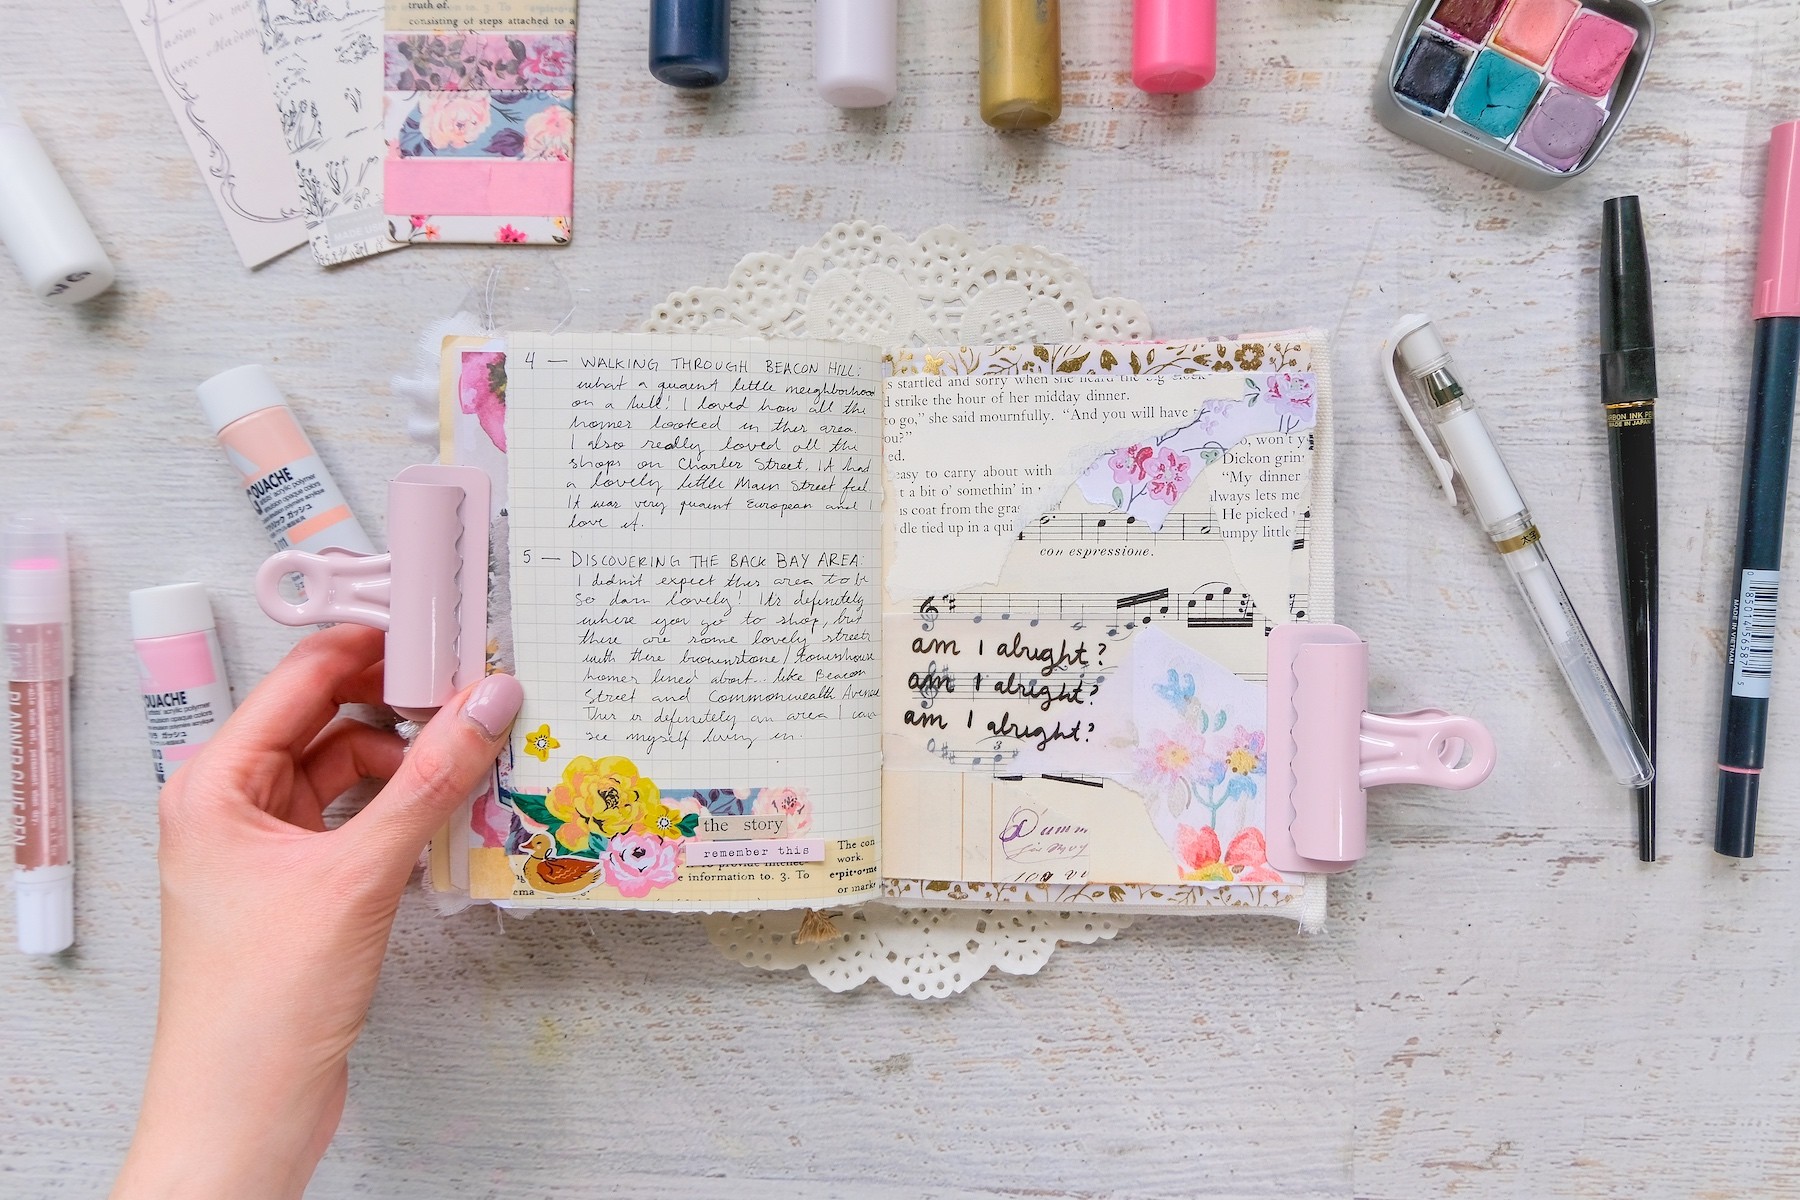 truth of.
consisting of steps attached to a
4 — WALKING THROUGH BEACON HILL:
what a quaint little neighborhood
on a hill! I loved how all the
homes looked in this area.
I also really loved all the
shops on Charles Street. It had
a lovely little Main Street feel.
It was very quaint European and I
love it.
5 — DISCOVERING THE BACK BAY AREA:
I didn't expect this area to be
so darn lovely! It's definitely
where you go to shop, but
there are some lovely streets
with these brownstone/townhouse
homes lined about... like Beacon
Street and Commonwealth Avenue
This is definitely an area I can
see myself living in.
the story
remember this
e information to. 3. To
The con
work.
e·pit·o·me
or mark
s startled and sorry when she heard the big clock
d strike the hour of her midday dinner.
to go," she said mournfully. "And you will have
ou?"
ed.
easy to carry about with
t a bit o' somethin' in
is coat from the gras
dle tied up in a qui
o, won't y
Dickon grin
"My dinner
always lets me
He picked
umpy little
con espressione.
am I alright?
am I alright?
am I alright?
3
OUACHE
artists' acrylic polymer
emulsion opaque colors
OUACHE
PLANNER GLUE PEN
CARBON INK PEN
MADE IN JAPAN
MADE IN VIETNAM